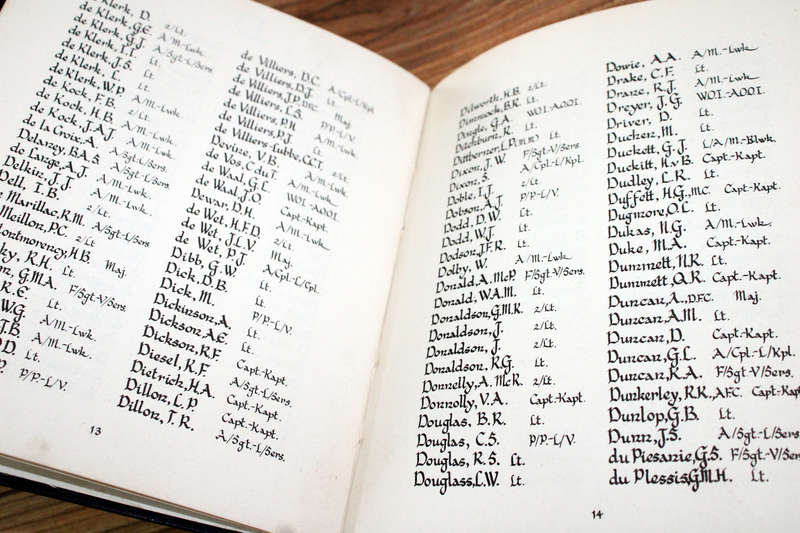 de Klerk, D. 2/Lt.
de Klerk, G.E. A/M.-Lwk.
de Klerk, G.J. A/Sgt-L/Sers.
de Klerk, I.I. Lt.
de Klerk, J.S. Lt.
de Klerk, L. Lt.
de Klerk, W.P. A/M.-Lwk.
de Kock, F.B. 2/Lt.
de Kock, H.B. A/M.-Lwk.
de Kock, J.A.J. A/M.-Lwk.
de la Croix, A. A/Sgt-L/Sers.
Delaney, B.A.S. A/Sgt-L/Sers.
de Lange, A.J. A/M.-Lwk.
Delkin, J.J. A/M.-Lwk.
Dell, I.B. 2/Lt.
Marillac, R.M. A/Sgt-L/Sers
Meillon, P.C. 2/Lt.
Montmorency, H.B. Maj.
R.H. Lt.
G.M.A. F/Sgt-V/Sers.
R.E. Lt.
W.G. A/M.-Lwk.
J.B. A/M.-Lwk.
D. Lt.
P/P.-L/V.
13
de Villiers, D.C. A/Cpl-L/Kpl.
de Villiers, D.J. Lt.
de Villiers, J.P., D.F.C. Maj.
de Villiers, L.S. P/P.-L/V.
de Villiers, P.H. A/M.-Lwk.
de Villiers, P.J. Lt.
de Villiers-Lubbe, C.C.T. 2/Lt.
Devine, V.B. A/M.-Lwk.
de Vos, C.du T. A/M.-Lwk.
de Waal, G.L. W.O.I.-A.O.O.I.
de Waal, J.O. Lt.
Dewar, D.H. Capt.-Kapt.
de Wet, H.F.D. A/M.-Lwk.
de Wet, J.L.V. 2/Lt.
de Wet, P.J. Maj.
Dibb, G.W. A/Cpl-L/Kpl.
Dick, D.B. Lt.
Dick, M. Lt.
Dickinson, A. P/P.-L/V.
Dickson, A.E. Lt.
Dickson, R.F. Capt.-Kapt.
Diesel, R.F. A/Sgt-L/Sers.
Dietrich, H.A. Capt.-Kapt.
Dillon, L.P. Capt.-Kapt.
Dillon, T.R. A/Sgt-L/Sers.
Dilworth, H.B. 2/Lt.
Dimmock, B.R. Lt.
Dingle, G.A. W.O.I.-A.O.O.I.
Ditchburn, R. Lt.
Dittberner, L.P. Lt.
Dixon, J.W. F/Sgt-V/Sers.
Dixon, S. A/Cpl-L/Kpl.
Doble, I.J. 2/Lt.
Dobson, A.J. P/P.-L/V.
Dodd, D.W. Lt.
Dodd, W.J. Lt.
Dodson, J.F.R. Lt.
Dolby, W. A/M.-Lwk.
Donald, A. McP. F/Sgt-V/Sers.
Donald, W.A.M. Lt.
Donaldson, G.M.R. 2/Lt.
Donaldson, J. 2/Lt.
Donaldson, J. 2/Lt.
Donaldson, R.G. Lt.
Donnelly, A. McR. 2/Lt.
Donnolly, V.A. Capt.-Kapt.
Douglas, B.R. Lt.
Douglas, C.S. P/P.-L/V.
Douglas, R.S. Lt.
Douglass, L.W. Lt.
Dowie, A.A. A/M.-Lwk.
Drake, C.F. Lt.
Drane, R.J. A/M.-Lwk.
Dreyer, J.G. W.O.I.-A.O.O.I.
Driver, D. Lt.
Ducker, M. Lt.
Duckett, G.J. L/A/M.-Blwk.
Duckitt, H.v.B. Capt.-Kapt.
Dudley, L.R. Lt.
Duffett, H.G., M.C. Capt.-Kapt.
Dugmore, O.L. Lt.
Dukas, N.G. A/M.-Lwk.
Duke, M.A. Capt.-Kapt.
Dummett, N.R. Lt.
Dummett, O.R. Capt.-Kapt.
Duncan, A., D.F.C. Maj.
Duncan, A.M. Lt.
Duncan, D. Capt.-Kapt.
Duncan, G.L. A/Cpl.-L/Kpl.
Duncan, K.A. F/Sgt-V/Sers.
Dunkerley, R.K., A.F.C. Capt.-Kapt
Dunlop, G.B. Lt.
Dunn, J.S. A/Sgt-L/Sers
du Piesanie, G.S. F/Sgt-V/Sers
du Plessis, G.M.H. Lt.
14